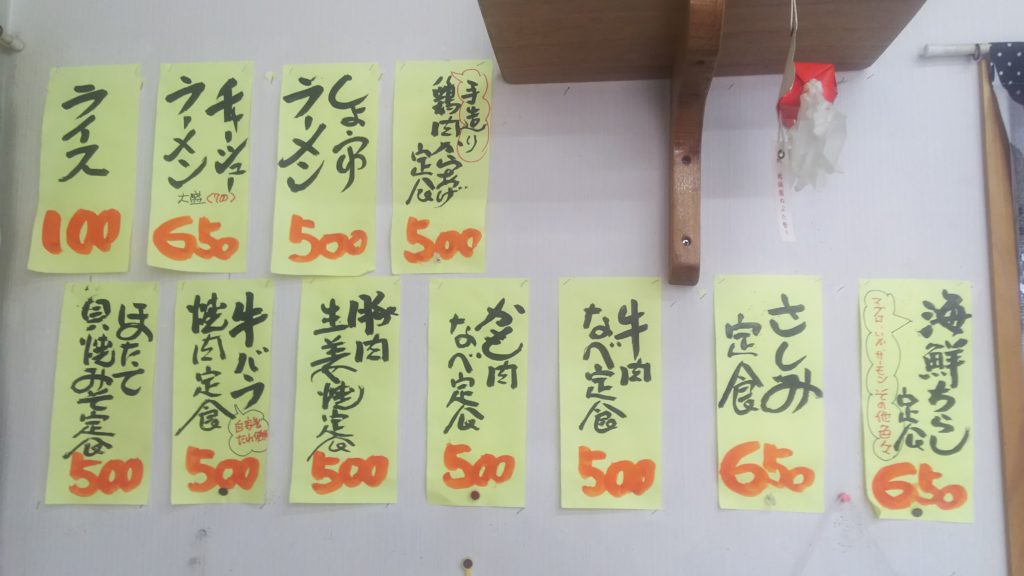 手造り
鶏肉からあげ
定食
500
しょうゆ
ラーメン
500
チャーシュー
ラーメン
大盛(700)
650
ライス
100
海鮮ちらし
定食
マグロ・いか・サーモン その他色々
650
さしみ
定食
650
牛肉
なべ定食
500
かも肉
なべ定食
500
豚肉
生姜焼定食
500
牛バラ
焼肉定食
自家製
たれ使用
500
ほたて
貝焼みそ定食
500